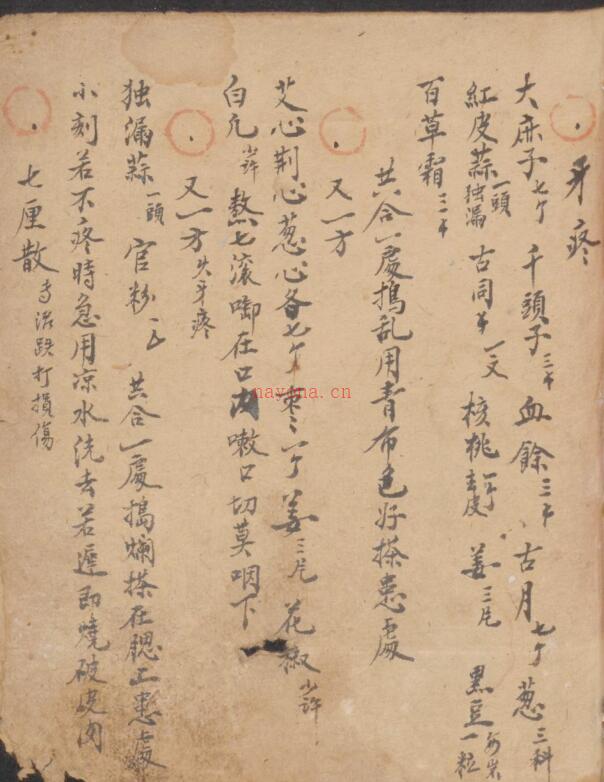 牙疼
大麻子七个 千頭子三个 血餘三个 古月七个 葱三科
紅皮蒜一頭独漏 古同千一文 核桃一个去皮 姜三片 黑豆每岁一粒
百草霜三个
共合一處搗乱用青布包好搽患處
又一方
艾心荆心葱心各七个枣一个姜三片 花椒小許
白凡小許 熬七滚啣在口内嗽口切莫咽下
又一方 火牙疼
独漏蒜一頭 官粉 共合一處搗爛搽在腮上患處
小刻若不疼時急用凉水洗去若遲即燒破皮肉
七厘散 专治跌打損傷
nayona.cn